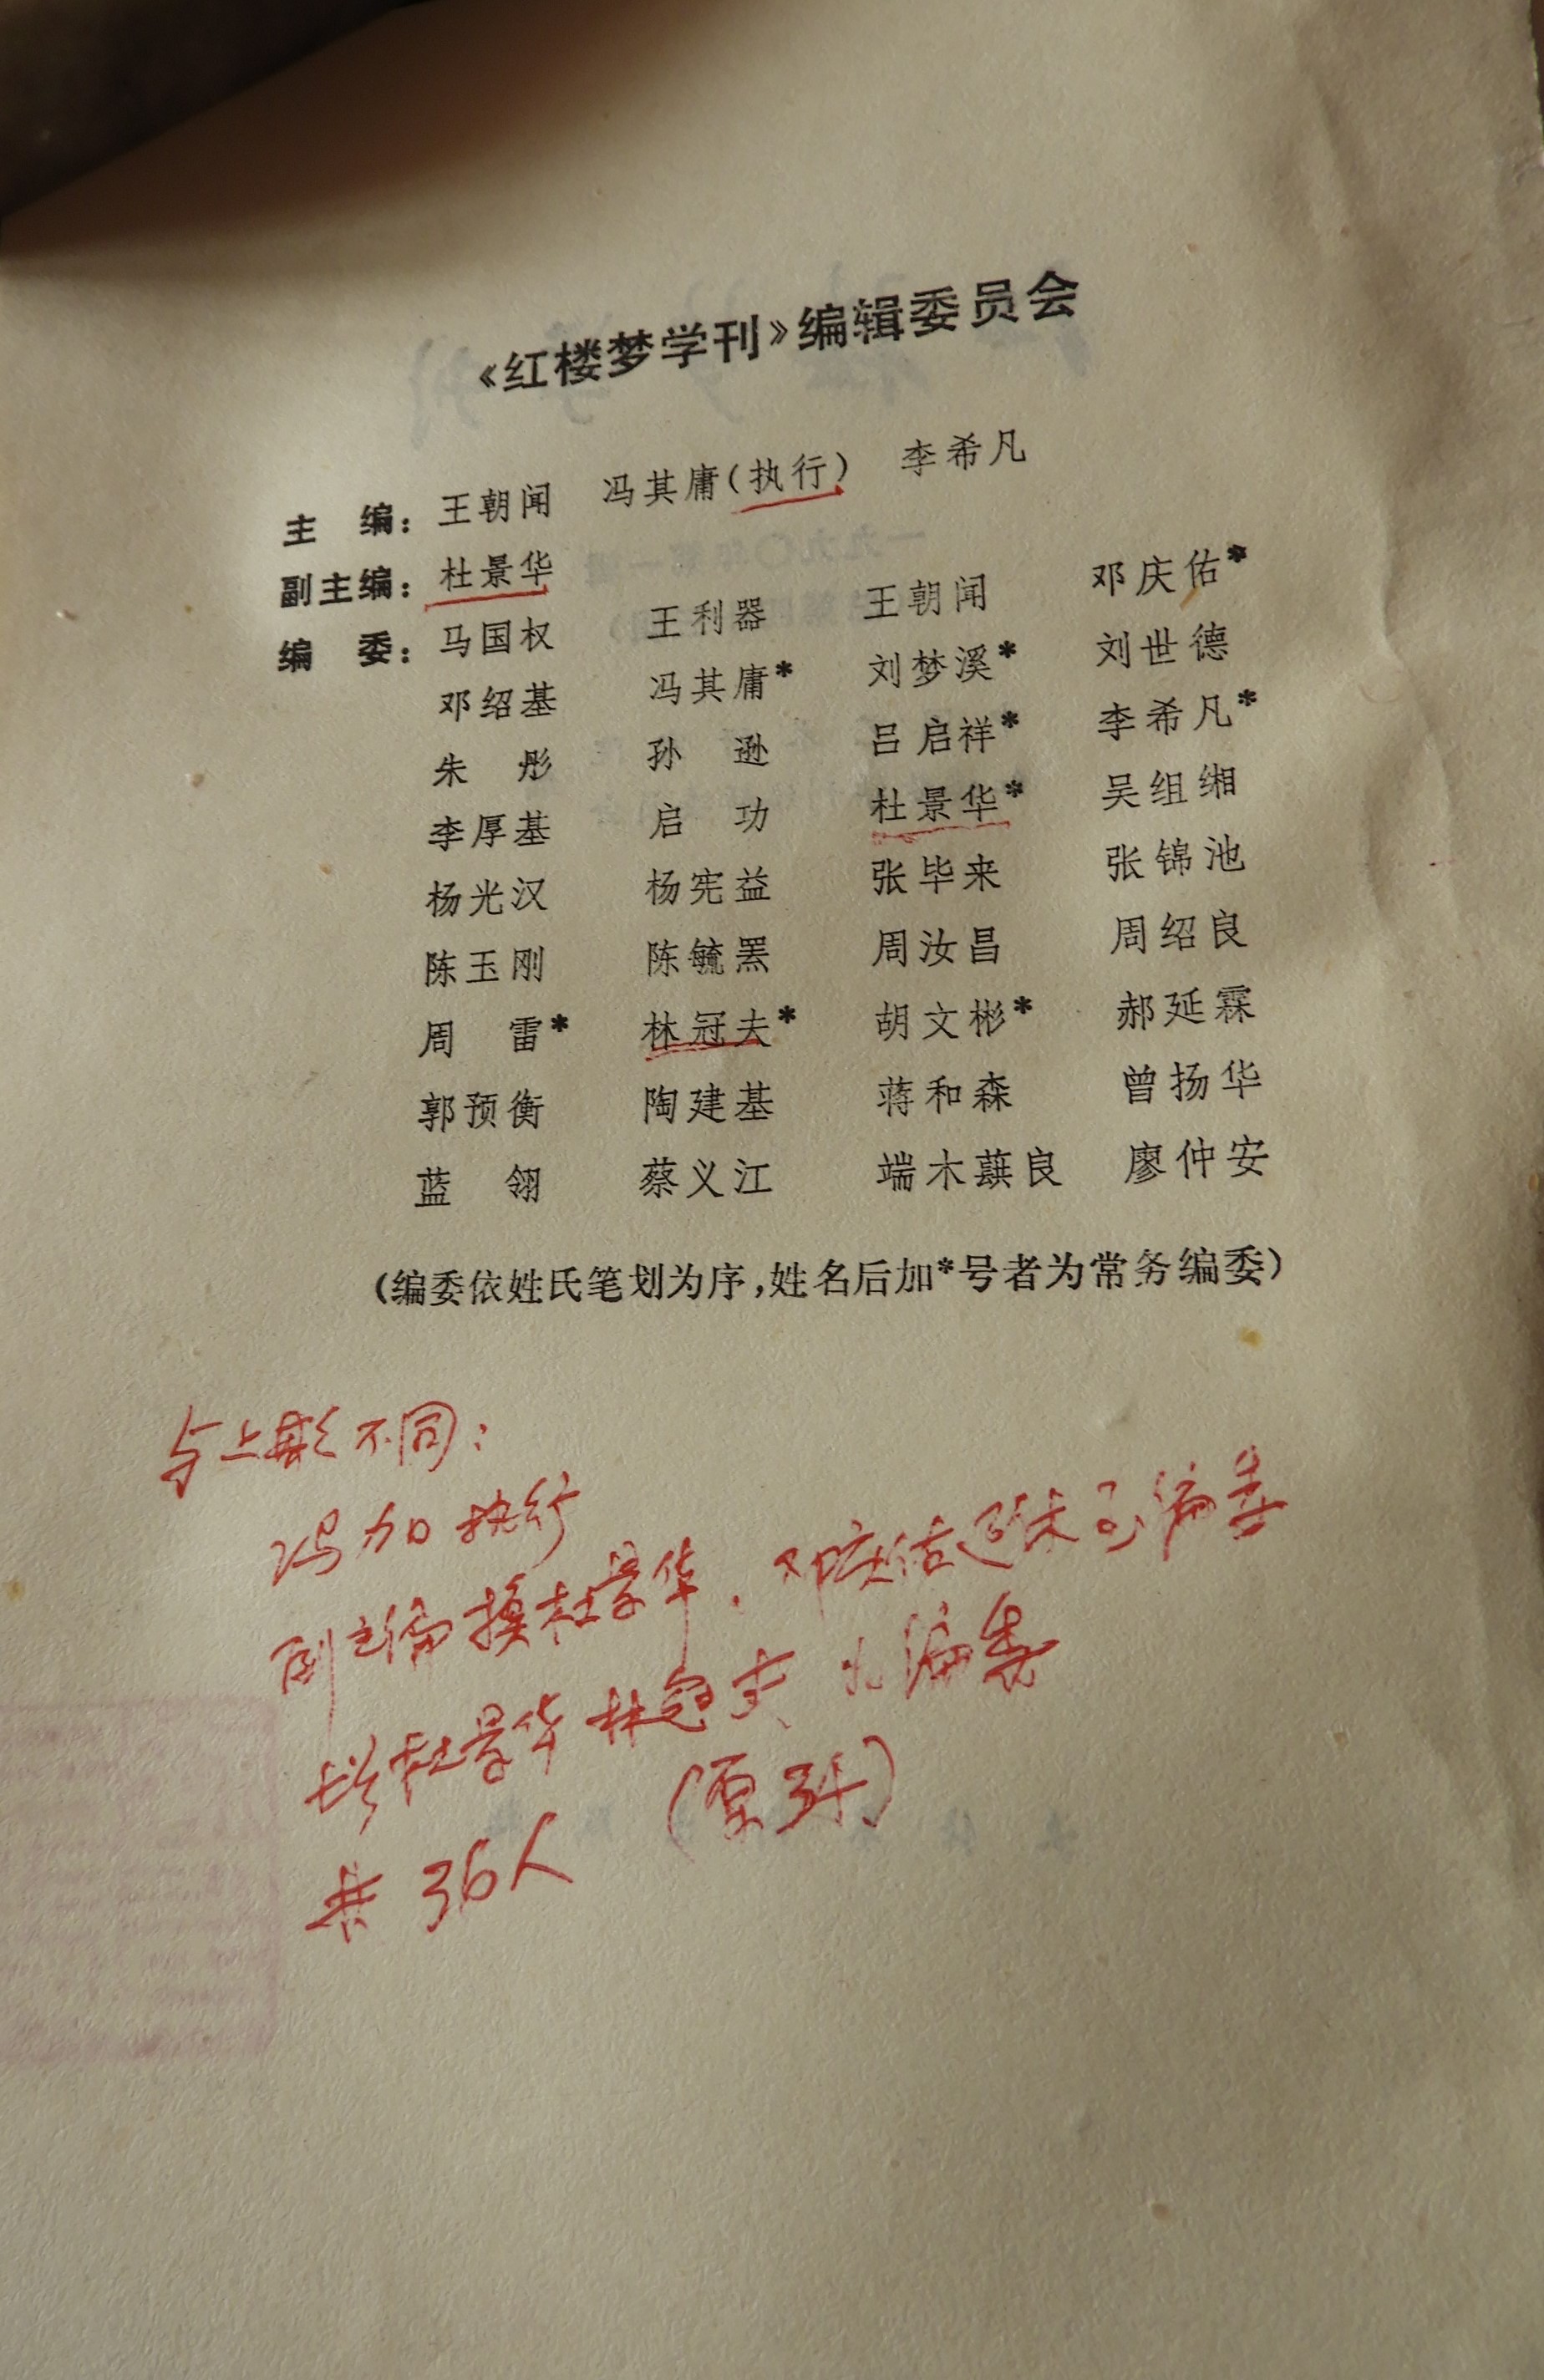 《红楼梦学刊》编辑委员会
主 编：王朝闻 冯其庸(执行) 李希凡
副主编：杜景华
编 委：马国权 王利器 王朝闻 邓庆佑*
邓绍基 冯其庸* 刘梦溪* 刘世德
朱 彤 孙 逊 吕启祥* 李希凡*
李厚基 启 功 杜景华* 吴组缃
杨光汉 杨宪益 张毕来 张锦池
陈玉刚 陈毓罴 周汝昌 周绍良
周 雷* 林冠夫* 胡文彬* 郝延霖
郭预衡 陶建基 蒋和森 曾扬华
蓝 翎 蔡义江 端木蕻良 廖仲安
(编委依姓氏笔划为序,姓名后加*号者为常务编委)
与上期不同：
冯加执行
副主编换杜景华. 邓庆佑退编委
增杜景华林冠夫 编委
共36人 (原34)